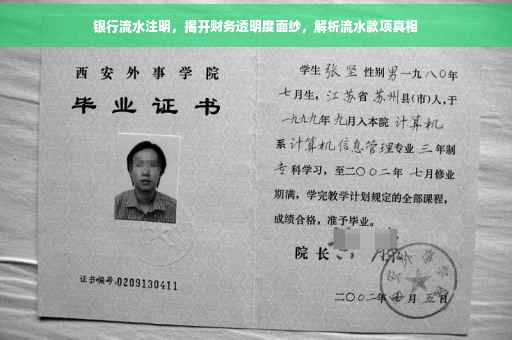 银行流水注明，揭开财务透明度面纱，解析流水款项真相
西安外事学院
毕业证书
证书编号:0209130411
学生 张坚 性别男 一九八〇年
七月生，江苏省苏州县(市)人,于
一九九九年九月入本院 计算机
系计算机信息管理专业 三年制
专科学习，至二〇〇二年 七月修业
期满，学完教学计划规定的全部课程，
成绩合格，准予毕业。
院长
二〇〇二年 月五日